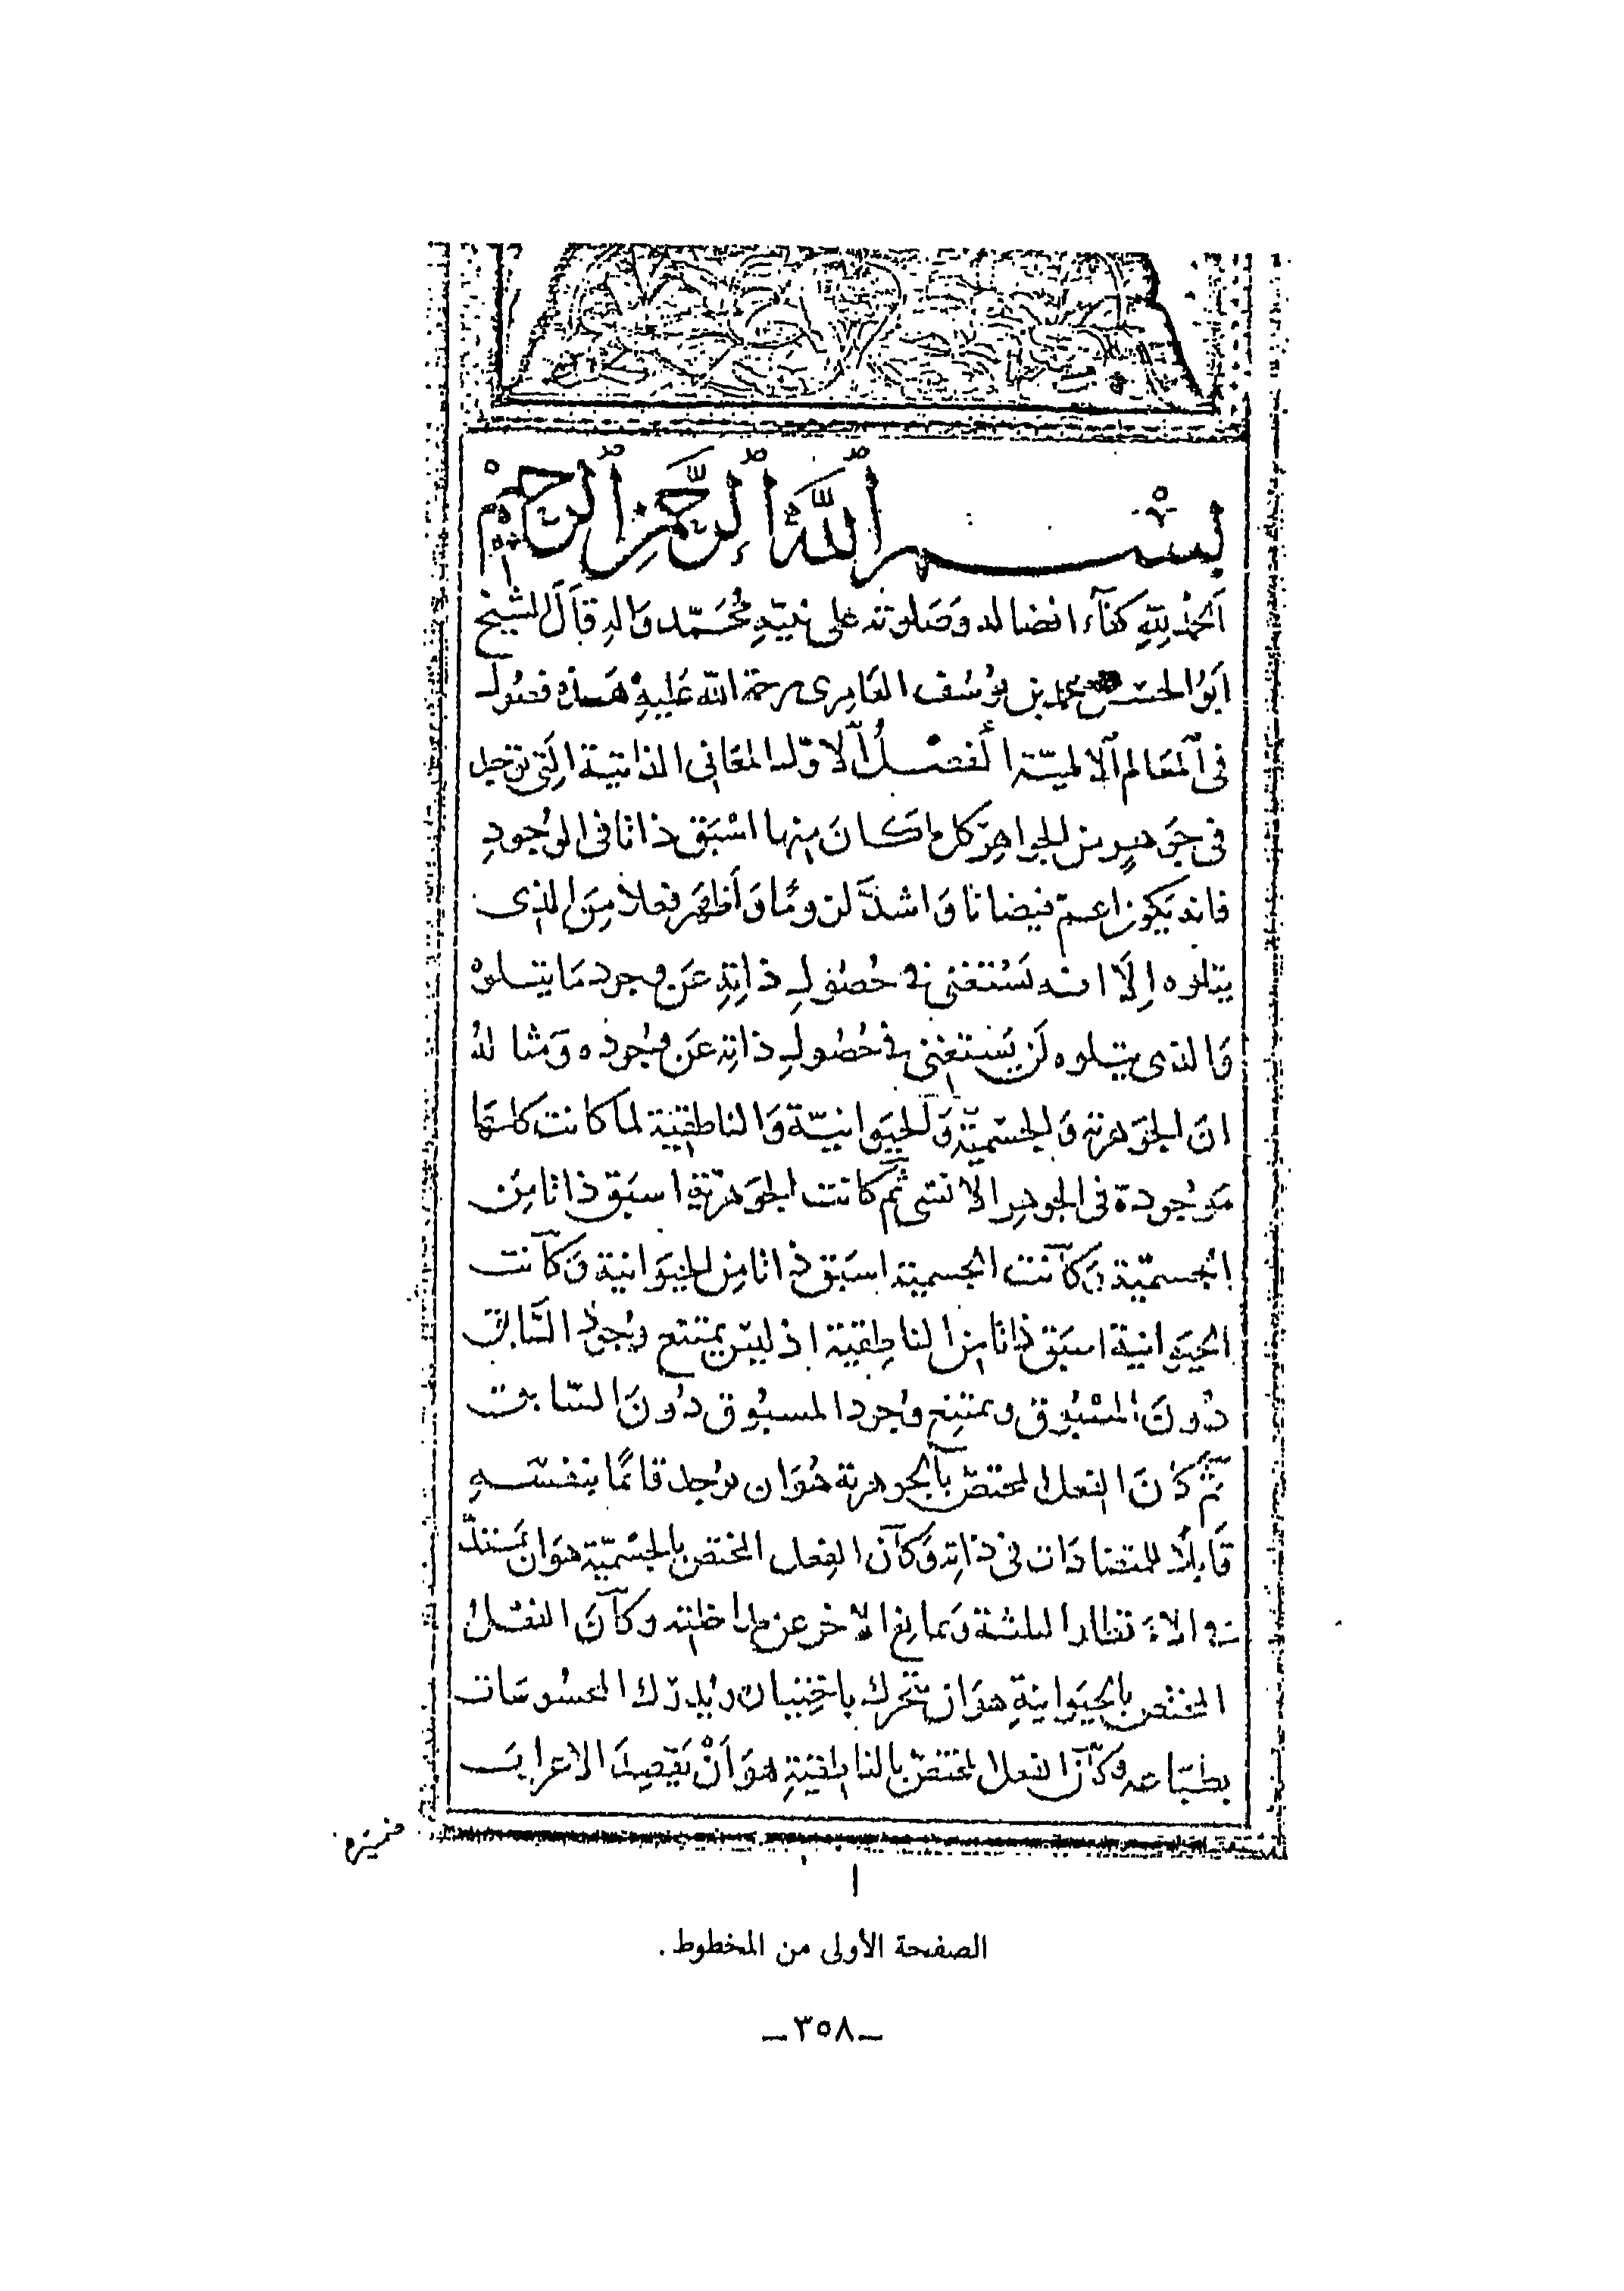 بسم الله الرحمن الرحيم
الحمد لله كفاء افضاله وصلوته على نبيه محمد واله قال الشيخ
ابو الحسن محمد بن يوسف العامرى رحمة الله عليه هذه فصول
فى المعالم الالهية الفصل الاول المعانى الذاتية التى توجد
فى جوهر من الجواهر كل ما كان منها اسبق ذاتا فى الوجود
فانه يكون اعم فيضانا واشد لزوما واظهر فعلا من الذى
يتلوه الا انه يستغنى فى حصول ذاته عن وجود ما يتلوه
والذى يتلوه لن يستغنى فى حصول ذاته عن وجوده ومثاله
ان الجوهرية والجسمية والحيوانية والناطقية لما كانت كلها
موجودة فى الجوهر الانسى ثم كانت الجوهرية اسبق ذاتا من
الجسمية وكانت الجسمية اسبق ذاتا من الحيوانية وكانت
الحيوانية اسبق ذاتا من الناطقية اذ ليس يمتنع وجود السابق
دون المسبوق ويمتنع وجود المسبوق دون السابق
ثم كان الفعل المختص بالجوهرية هو ان يوجد قائما بنفسه
قابلا للمتضادات فى ذاته وكان الفعل المختص بالجسمية هو ان يمتد
ذو الاقطار الثلثة ويمانع الاخر عن مداخلته وكان الفعل
المختص بالحيوانية هو ان يتحرك باختيار ويدرك المحسوسات
بطباعه وكان الفعل المختص بالناطقية هو ان الاعراب
ا
الصفحة الأولى من المخطوط.
_٣٥٨_